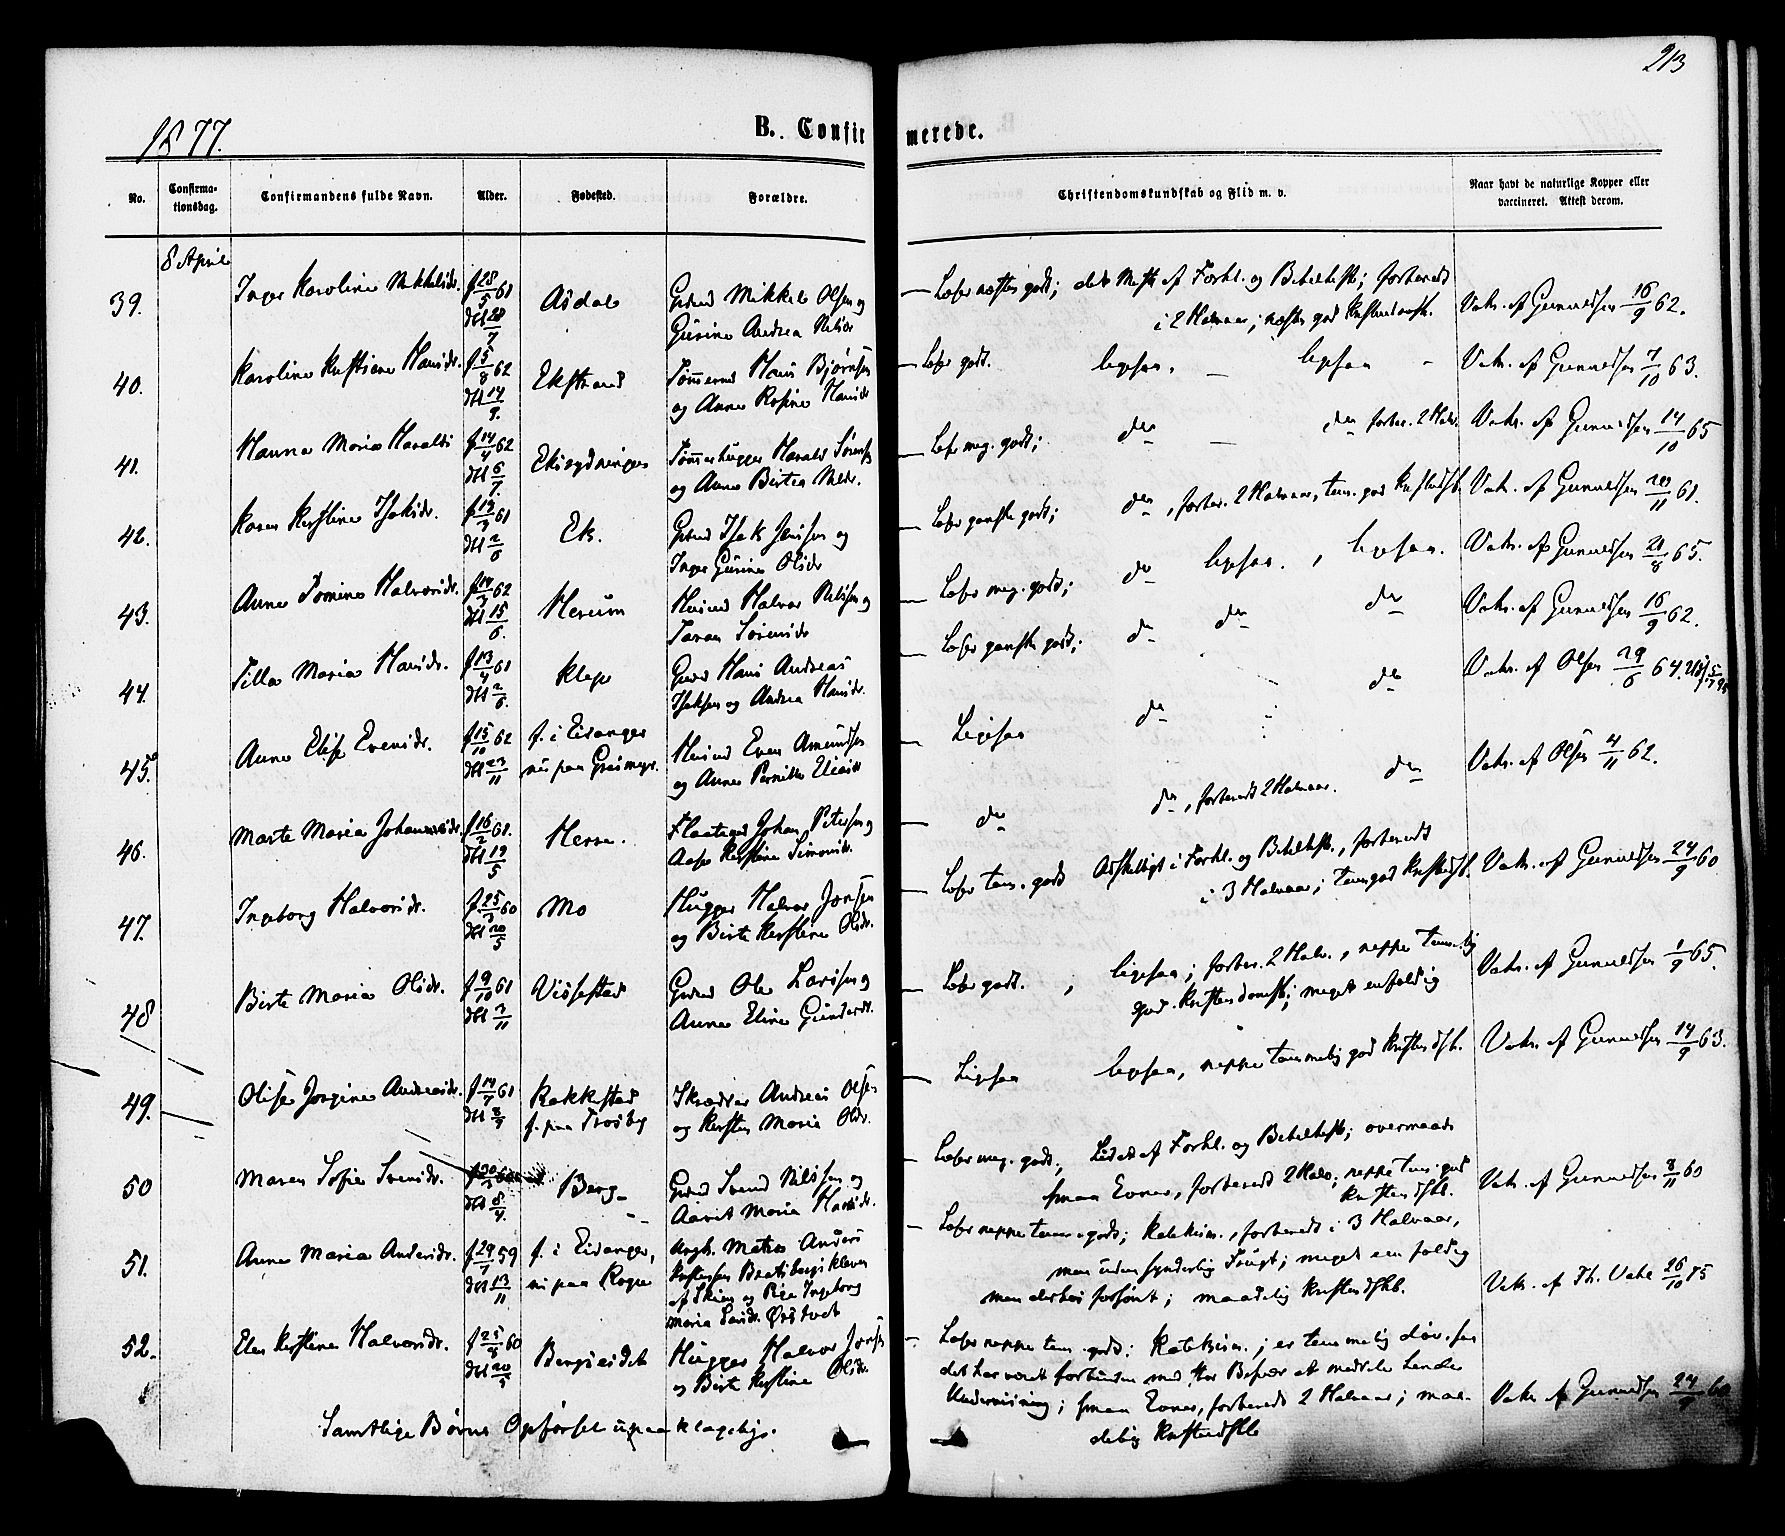 213
1877.
B. Confirmerede.
No.
Confirma-
tionsdag.
Confirmandens fulde Navn.
Alder.
Fødested.
Forældre.
Christendomskundskab og Flid m. v.
Naar havt de naturlige Kopper eller
vaccineret. Attest derom.
8 April
39. Inger Karoline Mikkelsdr. f 28/5 61 Aasdal Grdmd Mikkel Olsen og
Gurine Andrea Nilsdr
Læser næsten godt; det Meste af Forkl. og Bibelhist; forberedt
i 2 Halvaar; næsten god
Vakc. af Gunnulfsen 16/9 62.
40. Karoline Kristiane Hansdr. f 5/8 62 døbt 14/9. Ekstrand Tømmermd Hans Bjørnsen
og Anne Rosine Hansdr
Læser godt. ligesaa. — ligesaa -
Vakc. af Gunnulfsen 7/10 63.
41. Hanna Maria Haralds f 14/4 62 døbt 6/7. Eksrydningen Tømmerhugger Harald Sørensen
og Anne Birtea Nilsdr.
Læser meg. godt; do — do forber. 2 Halv.
Vakc. af Gunnulfsen 14/10 65
42. Karen Kirstine Isaksdr. 61 døbt 2/6 Ek. Grdmd Isak Jensen og
Inger Gurine Olsdr
Læser ganske godt; do, forber. 2 Halvaar, tem. god
Vak. af Gunnulfsen 61.
43. Anne Tomine Halvorsdr. 62 døbt 15/6. Herum Husmd Halvor Nilsen og
Taran Sørensdr
Læser meg. godt; do ligesaa. , ligesaa.
Vakc. af Gunnulfsen 21/8 65.
44. Tilla Maria Hansdr. f 13/4 61 døbt 2/6. Klep Grdmd Hans Andreas
Isaksen og Andrea Hansdr.
Læser ganske godt; do do do
Vakc. af Gunnulfsen 16/9 62.
45. Anne Elise Evensdr. f 15/10 62 døbt 23/11 f. i Eidanger
nu paa Grasmyr. Husmd Even Amundsen
og Anne Pernille
Ligesaa do do
Vakc. af Olsen 29/6 64.
46. Marte Maria Johannesdr. f 16/2 61. døbt 19/5 Herre. Flaatmd Johan Petersen og
Aase Kirstine Simonsdr.
do do, forberedt 2 Halvaar. do
Vakc. af Olsen 4/11 62.
47. Ingeborg Halvorsdr. 60 døbt 20/5 Mo Hugger Halvor Jonsen
og Birte Kirstine Olsdr.
Læser tem. godt Adskilligt i Forkl. og Bibelhist., forberedt
i 3 Halvaar; tem god
Vakc. af Gunnulfsen 24/9 60
48 Birte Maria Olsdr. f 9/10 61 døbt Vissestad Grdmd Ole Larsen og
Anne Eline Gundersdr.
Læser godt. , ligesaa; forber. 2 Halv., neppe temmelig
god Kristendomsk; meget enfoldig
Vakc. af Gunnulfsen 1/9 65.
49. Olise Jorgine Andreasdr. f 14/7 61 døbt Rakkestad
f. paa Trosby Skrædder Andreas Olsen
og Kirsten Maria Olsdr.
Ligesaa ligesaa, neppe temmelig god
Vakc. af Gunnulfsen 14/9 63.
50 Maren Sofie Svensdr. døbt 8/4. Berg Grdmd Svend Nilsen og
Aavit Maria Hansdr.
Læser meg. godt, Lidet af Forkl. og Bibelhist; overmaade
smaa Evner, forberedt 2 Halv; neppe tem. god
Vakc. af Gunnulfsen 8/11 60
51. Anne Maria Andersdr. f 29/7 59 døbt 13/11 f. i Eidanger,
nu paa Rogn Matros Anders
Kristensen Bratsbergkleven
af Skien og Pige Ingeborg
Maria Larsdr. Ørstvedt
Læser neppe tem. godt; Katekism., forberedt i 3 Halvaar,
men uden synderlig Frugt; meget enfoldig
men derhos forsømt; maadelig
Vakc. af Th. Vahl 26/10 75
52. Elen Kirstine Halvorsdr. 60 døbt 20/5 Bergseidet Hugger Halvor Jonsen
og Birte Kirstine Olsdr.
Læser neppe tem. godt; Katekism.; er temmelig døv, saa
det har været forbunden med stor Besvær at meddele hende
Undervisning; smaa Evner, forberedt 2 Halvaar; maa-
delig
Vakc. af Gunnulfsen 24/9 60
Samtlige Børns Opførsel upaaklagelig.